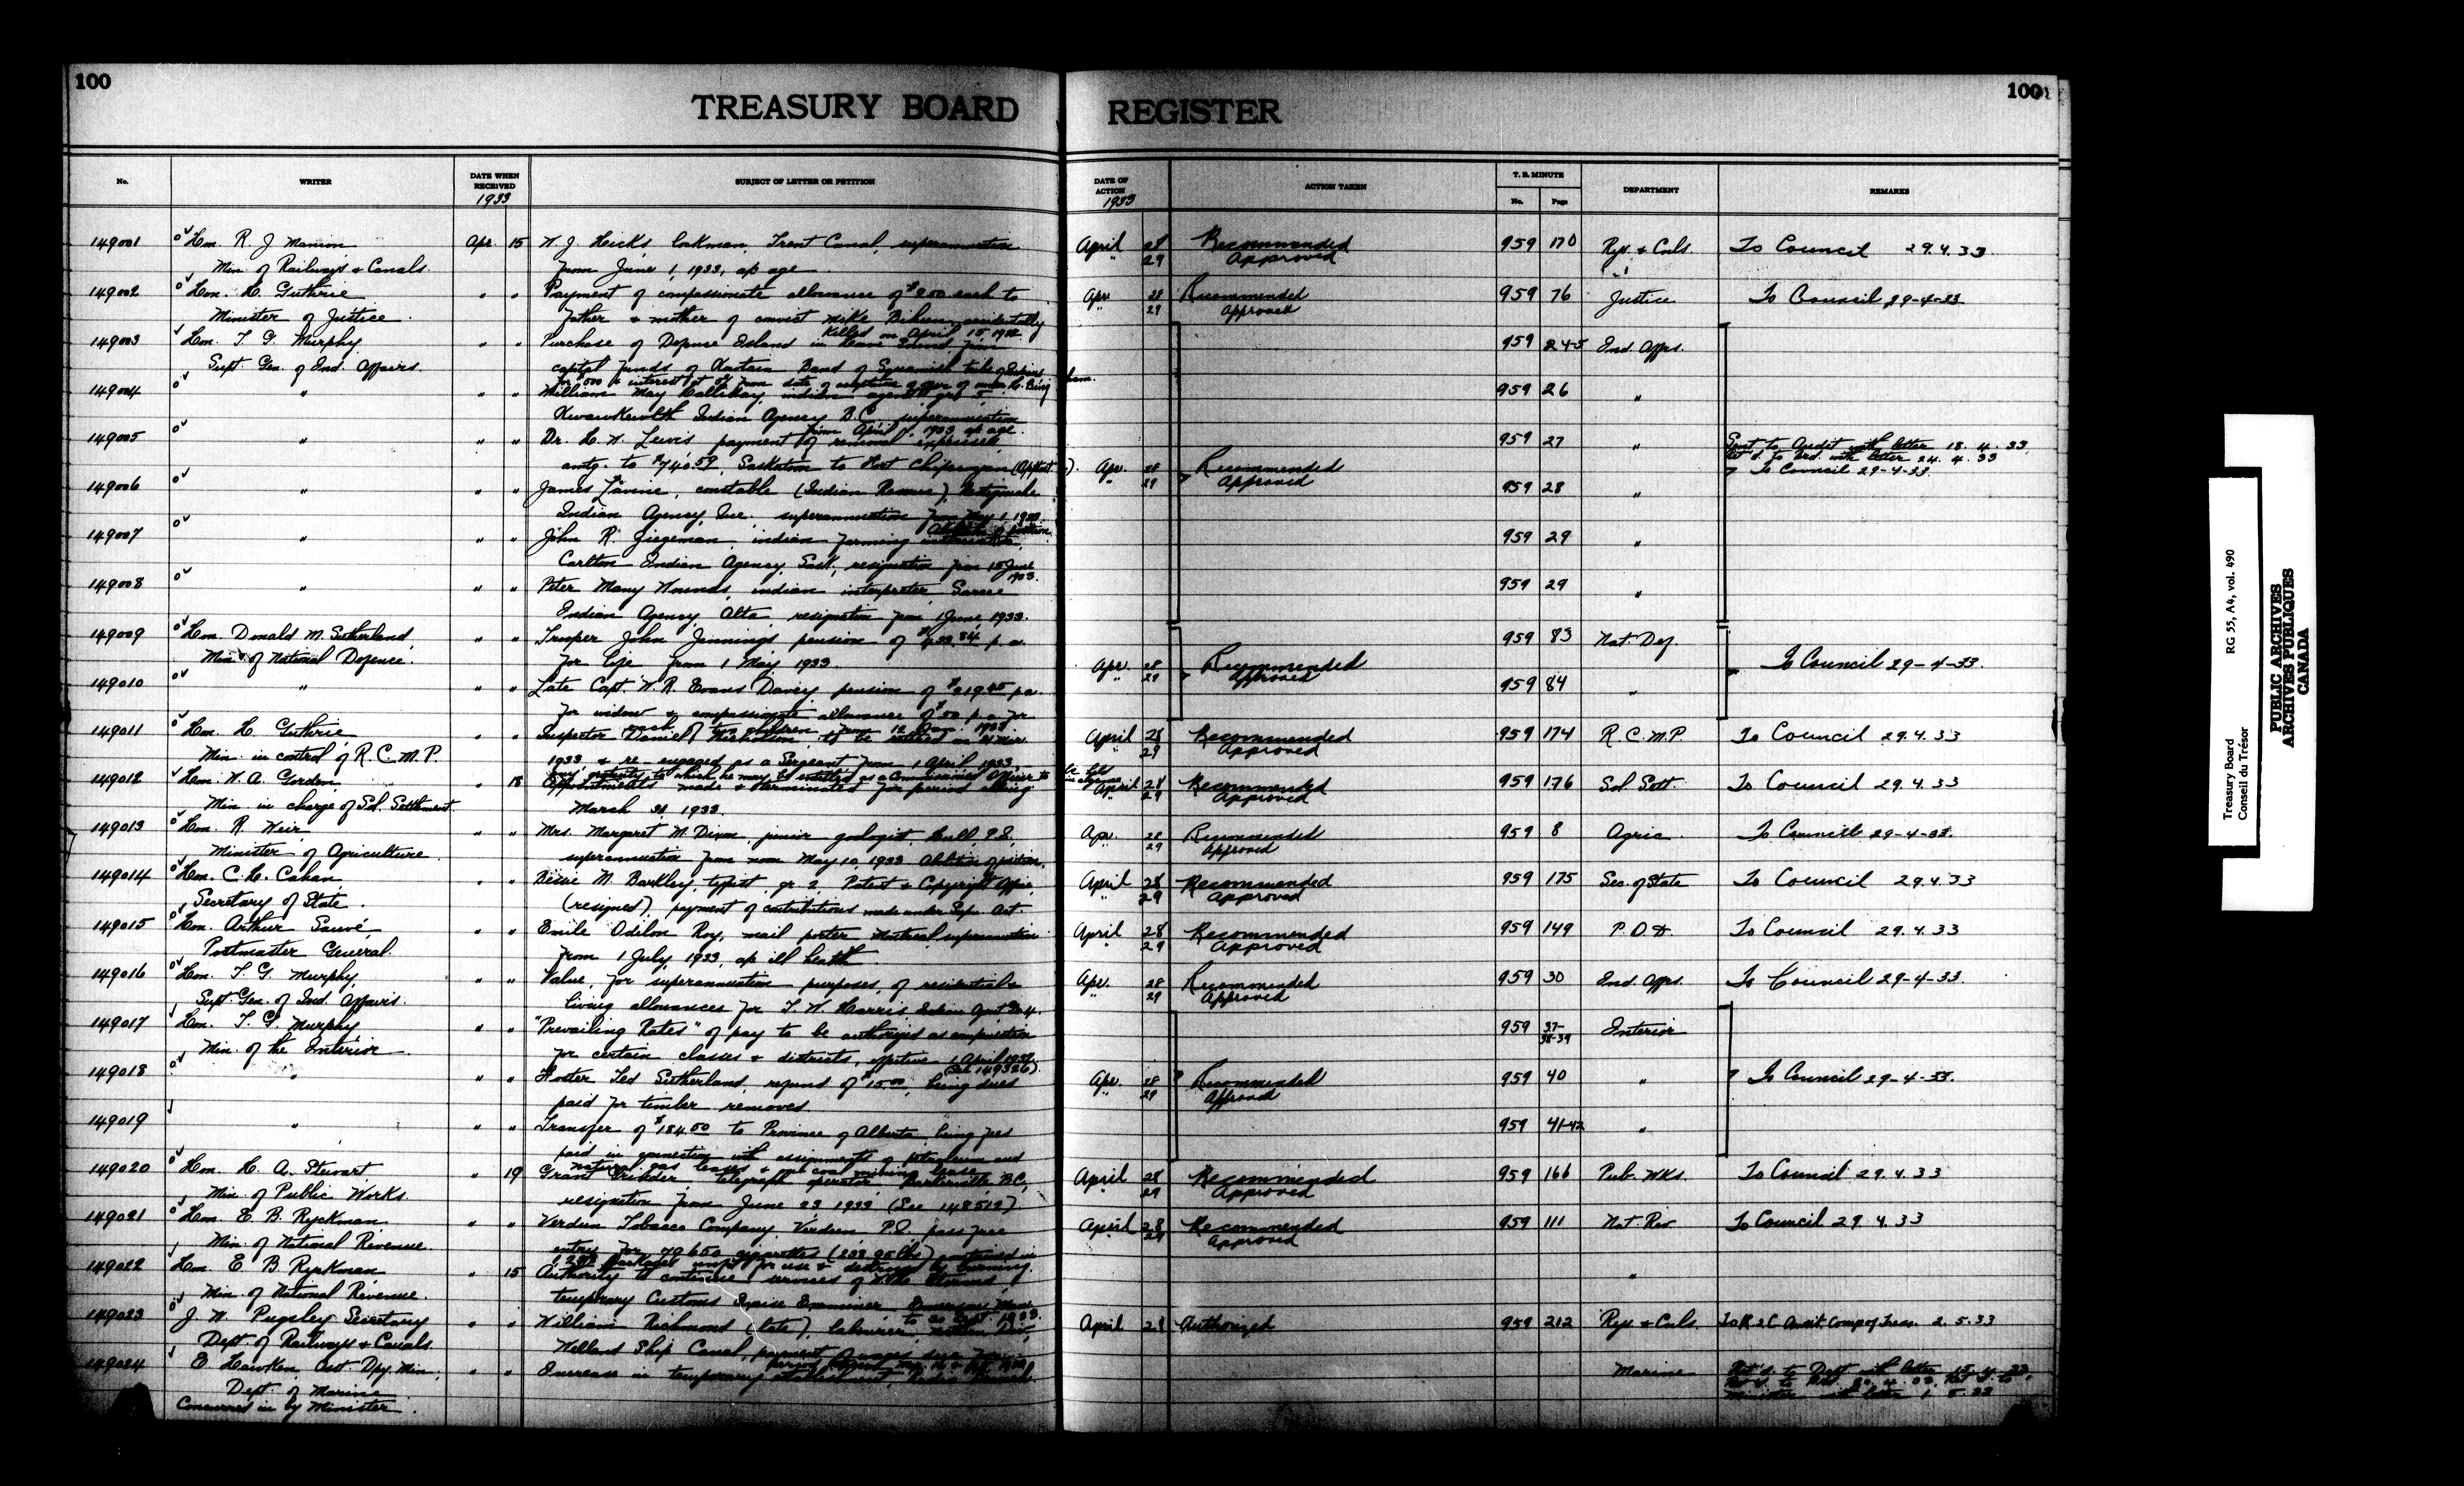 100
100
TREASURY BOARD REGISTER
No. WRITER DATE WHEN RECEIVED 1933 SUBJECT OF LETTER OR PETITION DATE OF ACTION 1933 ACTION TAKEN T. B. MINUTE No. Page DEPARTMENT REMARKS
149001 Hon. R. J. Manion Apr. 15 W. J. Hicks, lockman, Trent Canal, superannuation April 28 Recommended 959 170 Rys. & Cnls. To Council 29.4.33
Min. of Railways & Canals from June 1, 1933, a/c age. " 29 Approved
149002 Hon. H. Guthrie " " Payment of compassionate allowance of each to Apr. 28 Recommended 959 76 Justice To Council 29-4-33
Minister of Justice. father & mother of convict Mike accidentally " 29 Approved
killed on April 15,
149003 Hon. T. G. Murphy " " Purchase of Defence Island in Howe Sound from 959 24-5 Ind. Affrs.
Supt. Gen. of Ind. Affairs. capital funds of Band of Squamish tribe of Indians
for & interest at from date of of offer of
149004 " " " William May Halliday, indian agent, gr. 959 26 "
Kwawkewlth Indian Agency B.C. superannuation
from April 1933 a/c age.
149005 " " " Dr. H. W. Lewis payment of removal expenses 959 27 " Sent to Audit with letter 18.4.33
amtg. to $740.59, Saskatoon to Fort Chipewyan Apr. 28 Recommended Ret'd. to Brd. with letter 24.4.33
" 29 Approved To Council 29-4-33
149006 " " " James Lavine, constable (Indian Reserve), 959 28 "
Indian Agency, Que. superannuation from May 1, 1933
Abolition of position.
149007 " " " John R. indian farming 959 29 "
Carlton Indian Agency, Sask., resignation from 15 June
1933.
149008 " " " Peter Many Wounds, indian interpreter, Sarcee 959 29 "
Indian Agency, Alta, resignation from 1 June, 1933.
149009 Hon. Donald M. Sutherland " " Trooper John Jennings pension of p. a. 959 83 Nat. Def.
Min. of National Defence. for life from 1 May 1933. Apr. 28 Recommended To Council 29-4-33.
149010 " " " Late Capt. W. R. Evans Davey, pension of p.a. " 29 Approved 959 84 "
for widow & compassionate allowance of $50 p.a. for
each of two children from 12 1933.
149011 Hon. H. Guthrie " " Inspector Daniel Nicholson, to be retired on 31 Mar. April 28 Recommended 959 174 R.C.M.P. To Council 29.4.33
Min. in control of R.C.M.P. 1933 & re-engaged as a Sergeant from 1 April 1933, " 29 Approved
any gratuity to which he may be entitled as a Commissioned Officer to be held
149012 Hon. W. A. Gordon " 18 Appointments made & terminated for period ending April 28 Recommended 959 176 Sol. Sett. To Council 29.4.33
Min. in charge of Sol. Settlement March 31, 1933. " 29 Approved
149013 Hon. R. Weir " " Mrs. Margaret M. Dixon, junior Hull, P.Q., Apr. 28 Recommended 959 8 Agric. To Council 29-4-33.
Minister of Agriculture superannuation from May 10, 1933 Abolition of position. " 29 Approved
149014 Hon. C. H. Cahan " " M. Barkley, typist, gr. 2, Patent & Copyright Office, April 28 Recommended 959 175 Sec. of State To Council 29.4.33
Secretary of State. (resigned) payment of contributions made under Supn. Act. " 29 Approved
149015 Hon. Arthur Sauvé " " Emile Odilon Roy, mail porter, Montreal superannuation April 28 Recommended 959 149 P.O.D. To Council 29.4.33
Postmaster General. from 1 July, 1933, a/c ill health " 29 Approved
149016 Hon. T. G. Murphy, " " Value, for superannuation purposes, of residential & Apr. 28 Recommended 959 30 Ind. Affrs. To Council 29-4-33.
Supt. Gen. of Ind. Affairs. living allowances for T. W. Harris, Indian Agent Gr. 4. " 29 Approved
149017 Hon. T. G. Murphy " " "Prevailing Rates" of pay to be authorized as compensation 959 37-38-39 Interior
Min. of the Interior for certain classes & districts, effective 1 April 1932
(See 149326)
149018 " " " Foster Ted Sutherland, refund of $15.00, being dues Apr. 28 Recommended 959 40 " To Council 29-4-33.
paid for timber removed. " 29 Approved
149019 " " " Transfer of $184.50 to Province of Alberta, being fees 959 41-42 "
paid in connection with assignments of petroleum and
natural gas leases & one coal mining lease.
149020 Hon. H. A. Stewart " 19 Grant telegraph operator Barkerville B.C. April 28 Recommended 959 166 Pub. Wks. To Council 29.4.33
Min. of Public Works. resignation from June 23 1933 (See 148512) " 29 Approved
149021 Hon. E. B. Ryckman " " Verdun Tobacco Company, Verdun, P.Q., pass free April 28 Recommended 959 111 Nat. Rev. To Council 29.4.33
Min. of National Revenue entry for cigarettes contained in " 29 Approved
packages unfit for use & destroyed by burning.
149022 Hon. E. B. Ryckman " 15 Authority to continue services of "
Min. of National Revenue. temporary Customs Excise Examiner, Emerson Man.
to 30 Sept 1933.
149023 J. W. Pugsley Secretary " " William Richmond (late), labourer, April 28 Authorized 959 212 Rys. & Cnls. To R & C Audit. Comp of Treas. 2.5.33
Dept. of Railways & Canals Welland Ship Canal, payment of wages due for
period
149024 E. Hawken, Asst. Dpy. Min. " " Increase in temporary establishment, Radio Branch. Marine Ret'd. to Dept. with letter 15.4.33.
Dept. of Marine
Concurred in by Minister. Minister with letter 1.5.33
Treasury Board RG 55, A4, vol. 490
Conseil du Trésor
PUBLIC ARCHIVES
ARCHIVES PUBLIQUES
CANADA